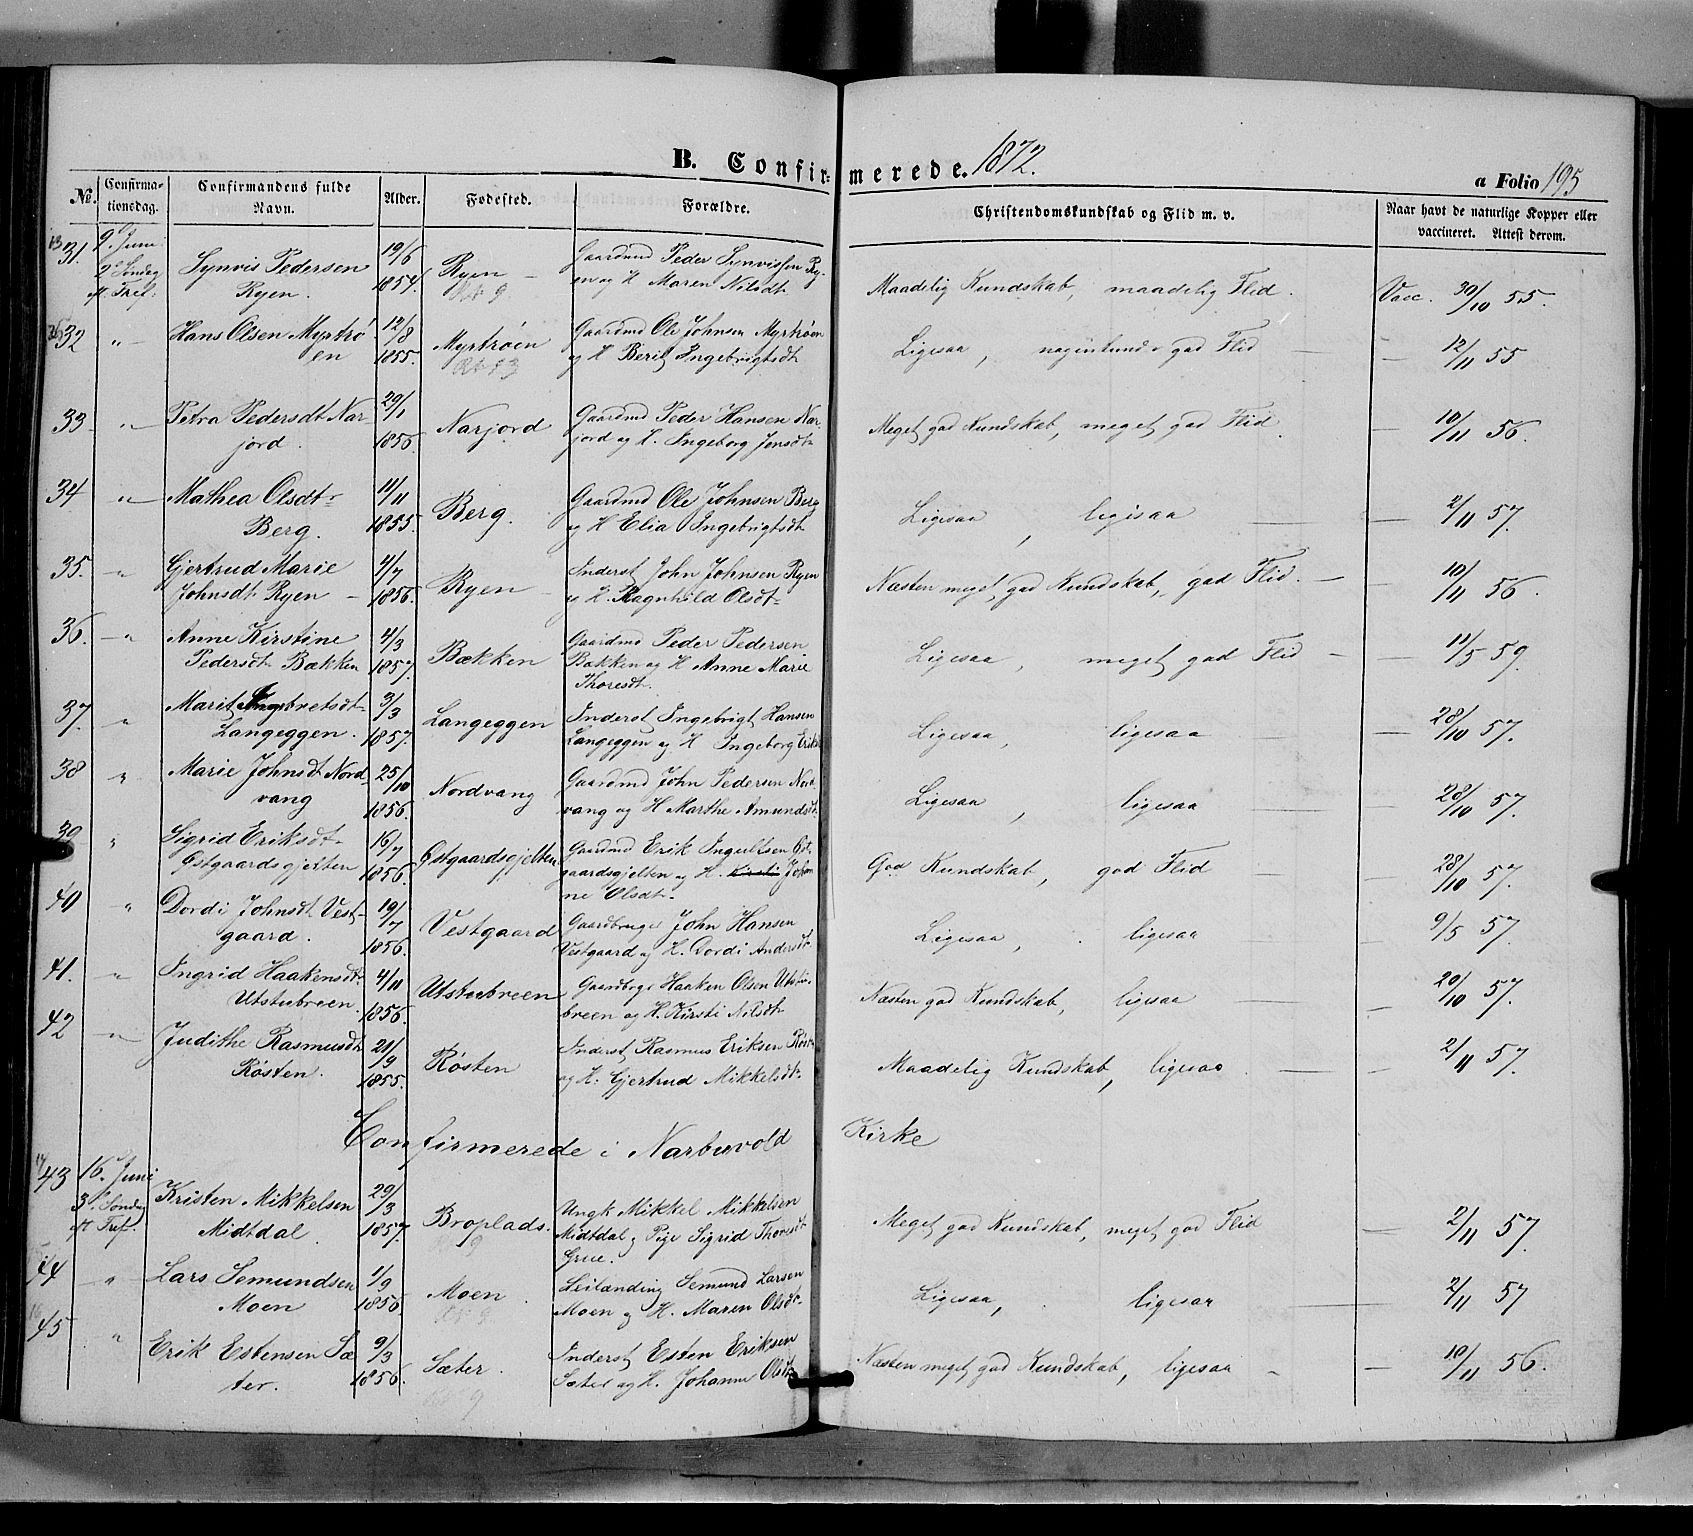 B. Confirmerede. 1872.
a Folio 195
No. Confirmationsdag. Confirmandens fulde Navn. Alder. Fødested. Forældre. Christendomskundskab og Flid m. v. Naar havt de naturlige Kopper eller vaccineret. Attest derom.
31. 9. Juni 2' Søndag ft. Tref. Synvis Pedersen Ryen. 19/6 1854. Ryen Gaardmd Peder Synvissen Ryen og H Maren Nilsdt. Maadelig Kundskab, maadelig Flid. Vacc. 30/10 55.
32 " Hans Olsen Myrtrøen 12/8 1855. Myrtrøen Gaardmd Ole Johnsen Myrtrøen og H Berit Ingebrigtsdt Ligesaa, nogenlunde god Flid — 12/11 55
33 " Petra Pedersdt Narjord. 29/1 1856. Narjord Gaardmd Peder Hansen Narjord og H. Ingeborg Jonsdt Meget god Kundskab, meget god Flid. — 10/11 56.
34 " Mathea Olsdt Berg. 11/11 1855. Berg. Gaardmd Ole Johnsen Berg og H Elia Ingebrigtsdt Ligesaa, ligesaa — 2/11 57.
35. " Gjertrud Marie Johnsdt Ryen 4/7 1856. Ryen Inderst John Johnsen Ryen og H. Ragnhild Olsdt Næsten meget god Kundskab, god Flid. — 10/11 56.
36. " Anne Kirstine Pedersdt Bækken 4/3 1857. Bækken Gaardmd Peder Pedersen Bækken og H Anne Marie Thoresdt. Ligesaa, meget god Flid — 11/5 59.
37. " Marit Ingebretsdt Langeggen. 3/3 1857. Langeggen Inderst Ingebrigt Hansen Langeggen og H Ingeborg Eriksd Ligesaa, ligesaa — 28/10 57.
38 " Marie Johnsdt Nordvang 25/10 1856. Nordvang Gaardmd John Pedersen Nordvang og H Marthe Amundsdt. Ligesaa, ligesaa — 28/10 57.
39 " Sigrid Eriksdt Østgaardsgjelten 16/7 1856. Østgaardsgjelten Gaardmd Erik Ingulfsen Østgaardsgjelten og H. Kirsti Johanne Olsdt. God Kundskab, god Flid — 28/10 57.
40 " Dordi Johnsdt Vestgaard. 19/7 1856. Vestgaard Gaardbruge John Hansen Vestgaard og H. Dordi Andersdt. Ligesaa, ligesaa — 9/5 57.
41. " Ingrid Haakensdt Utstubreen. 4/11 1856. Utstubreen Gaardbrge Haaken Olsen Utstubreen og H. Kirsti Nilsdt Næsten god Kundskab, ligesaa — 20/10 57.
42 " Judithe Rasmusdt Røsten. 21/9 1855. Røsten Inderst Rasmus Eriksen Røsten og H. Gjertrud Mikkelsdt. Maadelig Kundskab, ligesaa — 2/11 57.
Confirmerede i Narbuvold Kirke
43 16. Juni 3' Søndag ft. Tref. Kristen Mikkelsen Midtdal. 29/3 1857. Broplads. Ungk Mikkel Mikkelsen Midtdal og Pige Sigrid Thoresdt Grue. Meget god Kundskab, meget god Flid — 2/11 57.
44 " Lars Semundsen Moen 1/9 1856 Moen. Leilænding Semund Larsen Moen og H. Maren Olsdt. Ligesaa, ligesaa — 2/11 57
45 " Erik Estensen Sæter. 9/3 1856. Sæter. Inderst Esten Eriksen Sæter og H. Johanne Olsdt Næsten meget god Kundskab, ligesaa — 10/11 56.